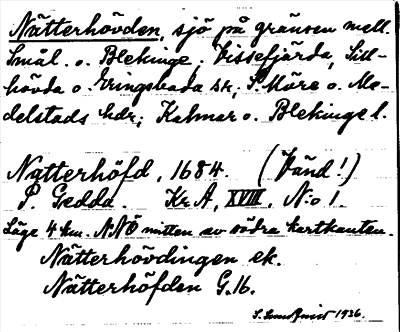 Nätterhövden, sjö på gränsen mell.
Smål. o. Blekinge; Vissefjärda, Sill-
hövda o. Eringsboda sr, S. Möre o. Me-
delstads hdr; Kalmar o. Blekinge l.
Natterhöfd, 1684. (Vänd!)
P. Gedda. Kr. A, XVIII, N:o 1.
Läge 4 km. NNÖ mitten av södra kartkanten.
Nätterhövdingen ek.
Nätterhöfden G.16.
S. Lundkvist 1936.